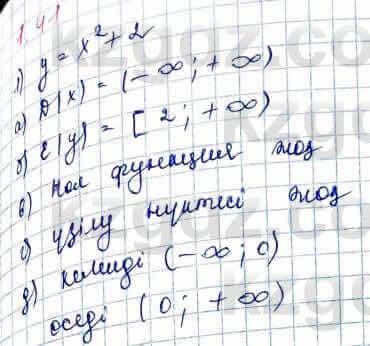 1.41
1) y = x² + 2
а) D(x) = (-∞; +∞)
б) E(y) = [2; +∞)
в) Нол функция жоқ
с) үзілу нүктесі жоқ
д) кемиді (-∞; 0)
өседі (0; +∞)